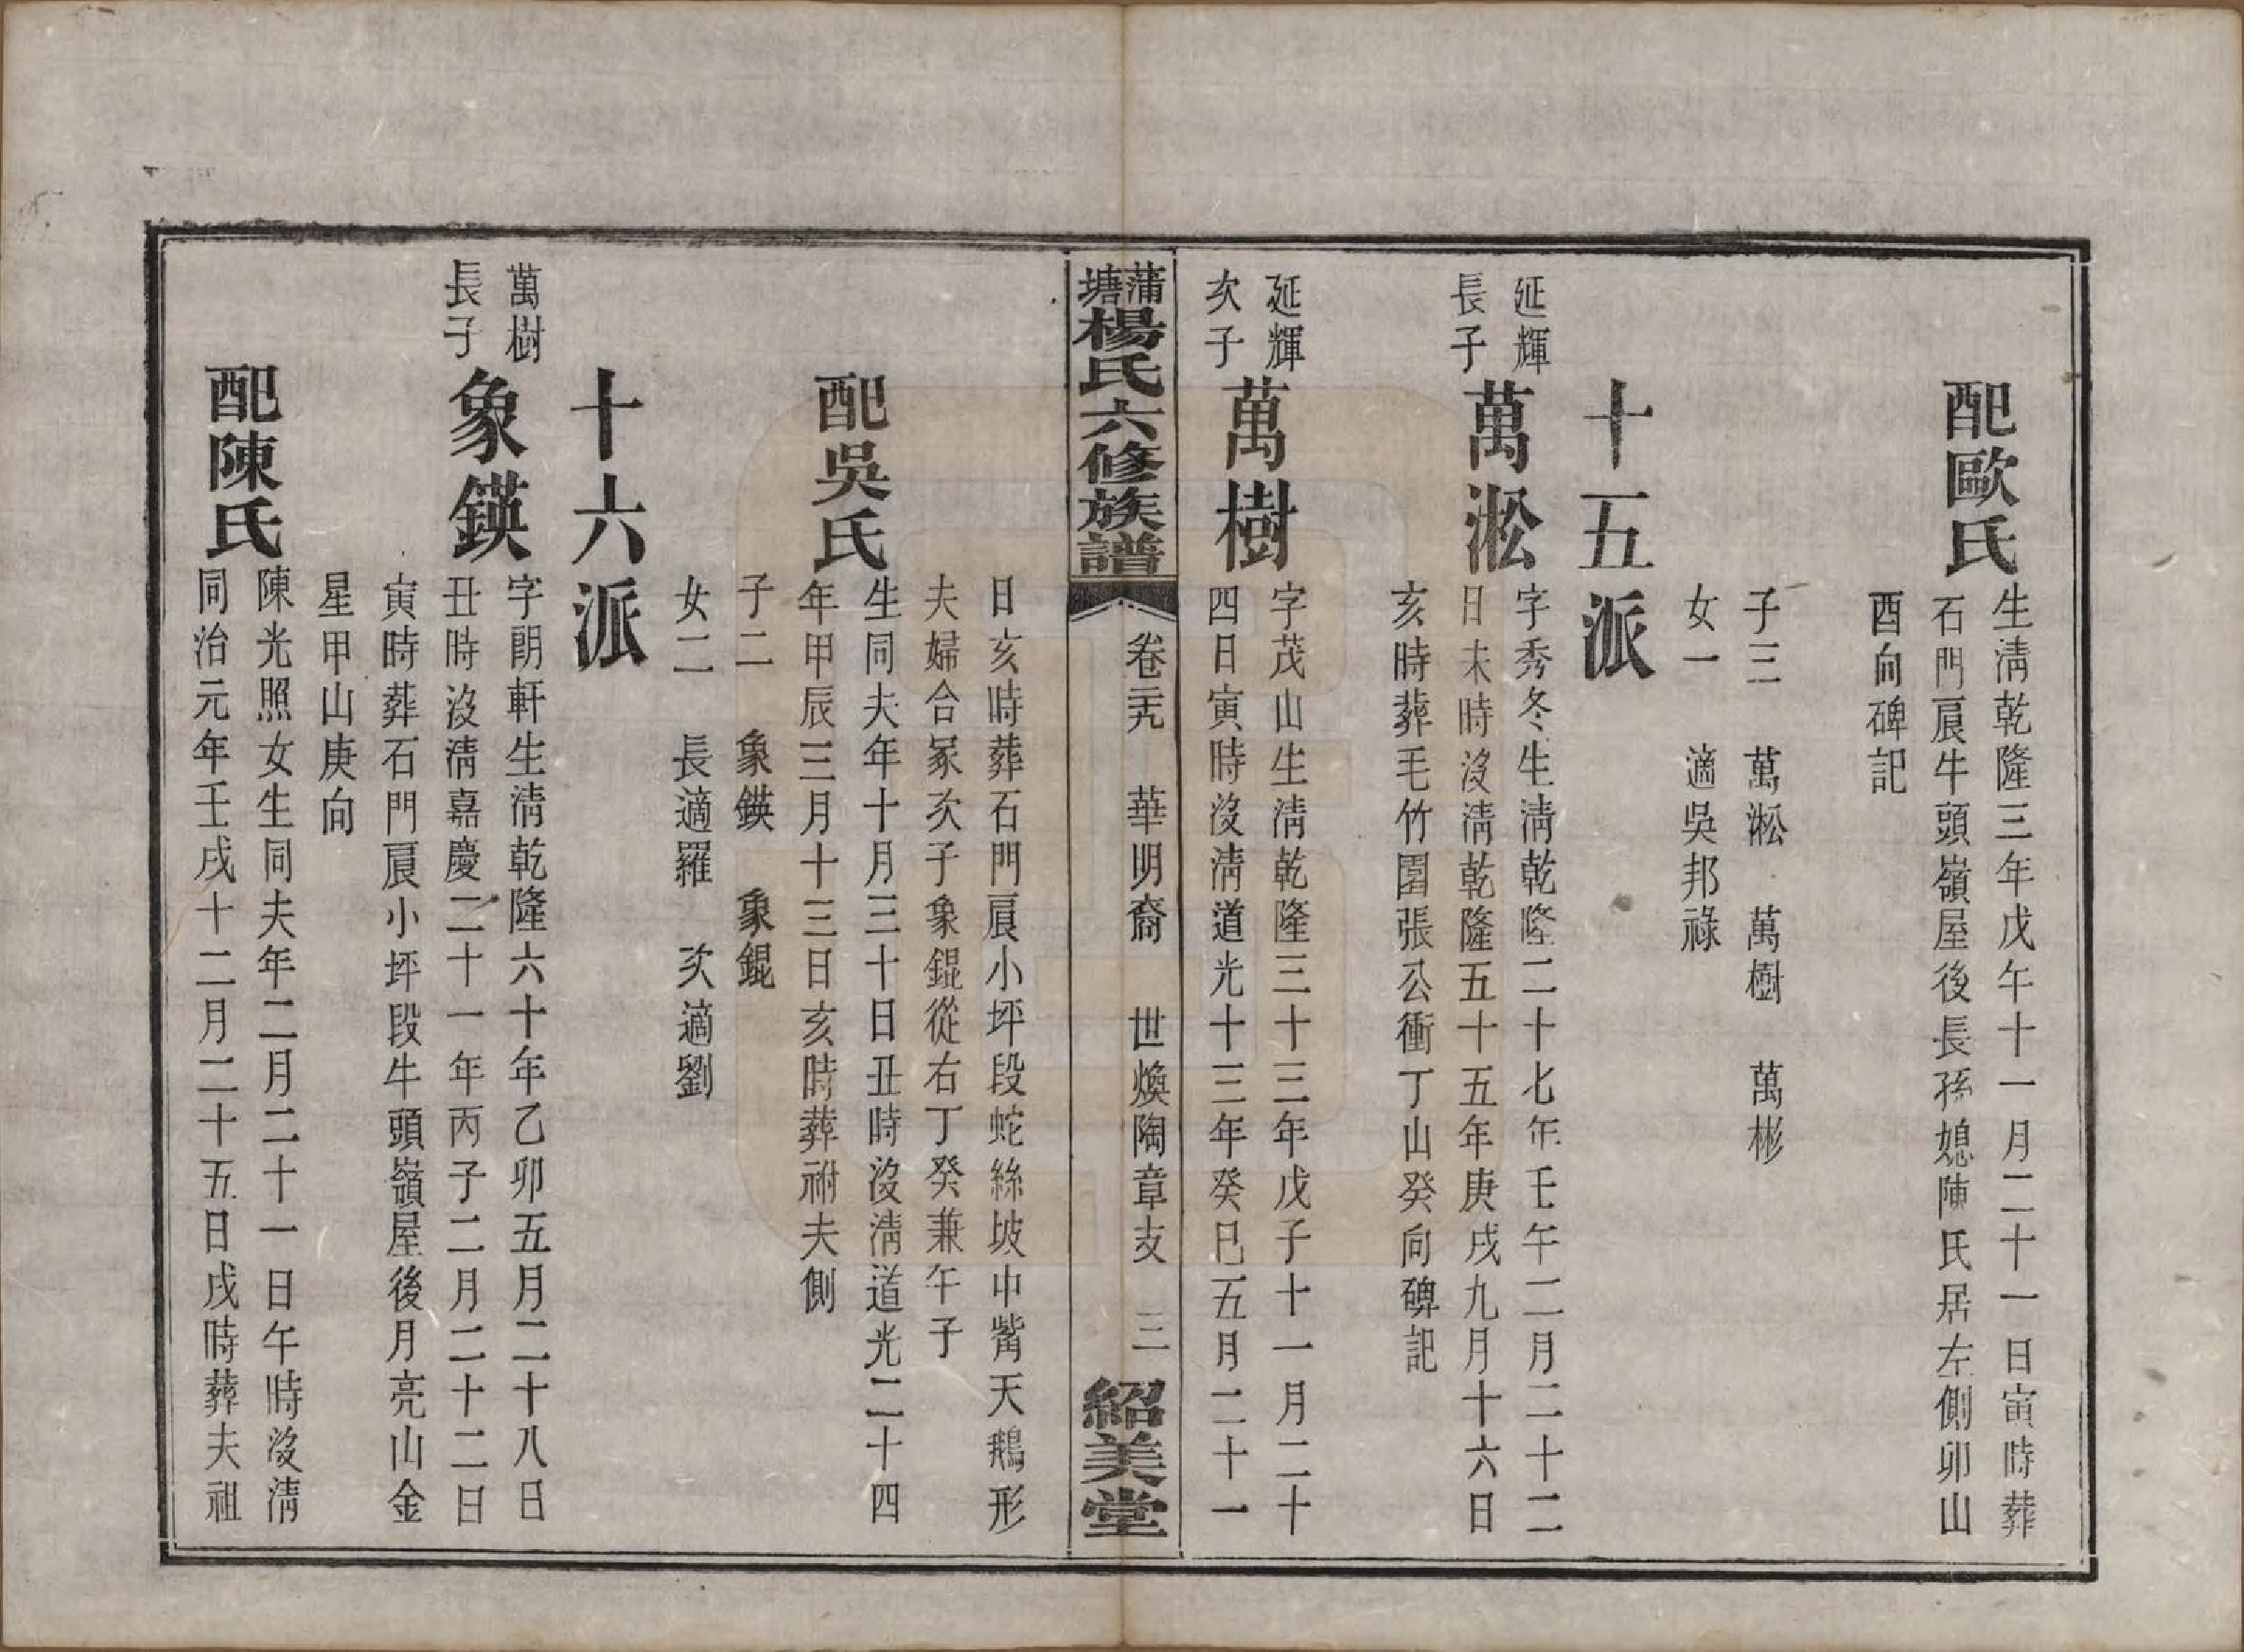 配歐氏
生淸乾隆三年戊午十一月二十一日寅時葬
石門㫳牛頭嶺屋後長孫媳陳氏居左側卯山
酉向碑記
子三 萬淞 萬樹 萬彬
女一 適吳邦祿
十五派
延輝
長子
萬淞
字秀冬生淸乾隆二十七年壬午二月二十二
日未時沒淸乾隆五十五年庚戌九月十六日
亥時葬毛竹園張公衝丁山癸向碑記
延輝
次子
萬樹
字茂山生淸乾隆三十三年戊子十一月二十
四日寅時沒淸道光十三年癸巳五月二十一
蒲塘楊氏六修族譜
卷二十九 華明裔 世煥陶章支 三
紹美堂
日亥時葬石門㫳小坪段蛇絲坡巾嘴天鵝形
夫婦合冢次子象錕從右丁癸兼午子
配吳氏
生同夫年十月三十日丑時沒淸道光二十四
年甲辰三月十三日亥時葬祔夫側
子二 象鍈 象錕
女二 長適羅 次適劉
十六派
萬樹
長子
象鍈
字朗軒生淸乾隆六十年乙卯五月二十八日
丑時沒淸嘉慶二十一年丙子二月二十二日
寅時葬石門㫳小坪段牛頭嶺屋後月亮山金
星甲山庚向
配陳氏
陳光照女生同夫年二月二十一日午時沒淸
同治元年壬戌十二月二十五日戌時葬夫祖